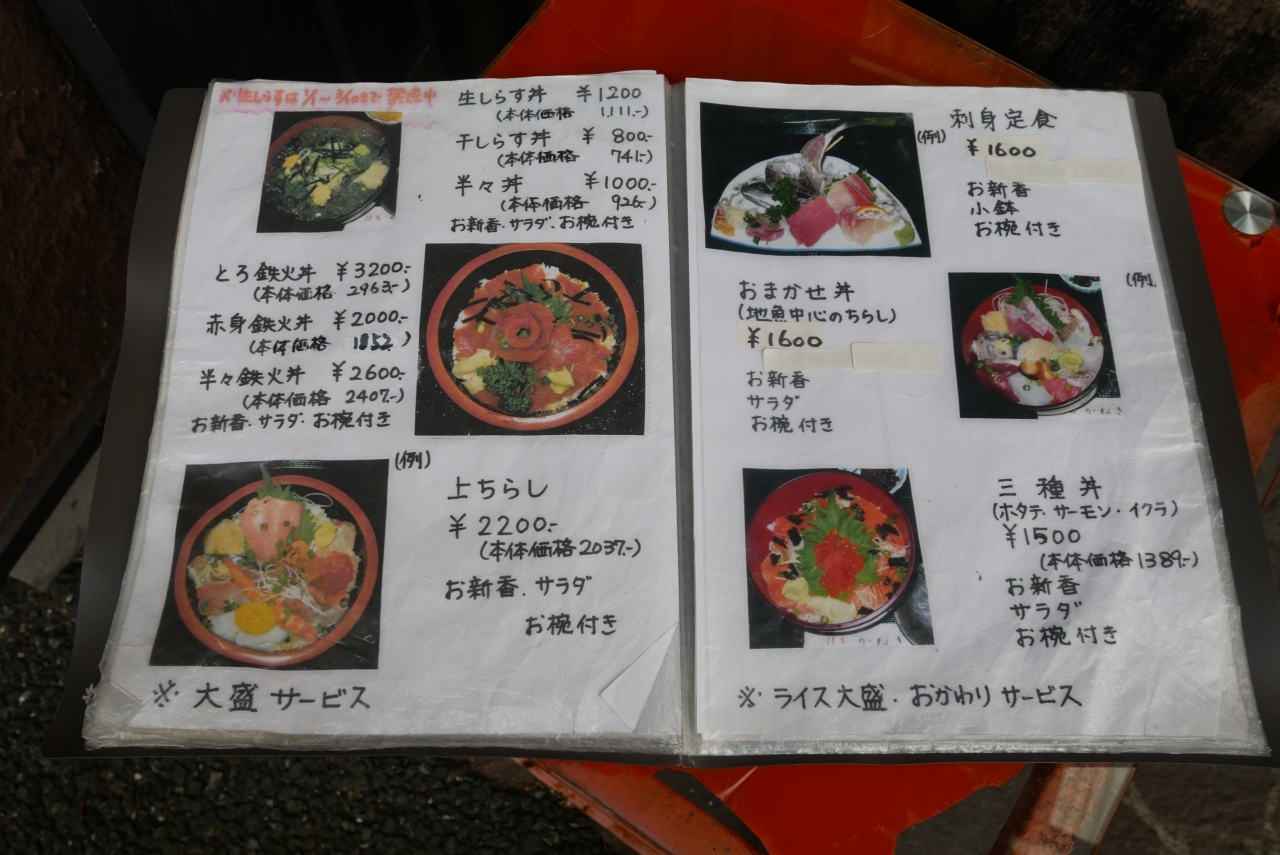 ※生しらすは1/1～3/10まで禁漁中
生しらす丼 ¥1200
(本体価格 1,111.-)
干しらす丼 ¥ 800.-
(本体価格 741.-)
半々丼 ¥1000.-
(本体価格 926.-)
お新香.サラダ.お椀付き
とろ鉄火丼 ¥3200.-
(本体価格 2963.-)
赤身鉄火丼 ¥2000.-
(本体価格 1852 )
半々鉄火丼 ¥2600.-
(本体価格 2407.-)
お新香.サラダ.お椀付き
(例)
上ちらし
¥2200.-
(本体価格2037.-)
お新香.サラダ
お椀付き
※大盛サービス
(例)
刺身定食
¥1600
お新香
小鉢
お椀付き
おまかせ丼
(地魚中心のちらし)
¥1600
お新香
サラダ
お椀付き
(例.
三種丼
(ホタテ・サーモン・イクラ)
¥1500
(本体価格1389.-)
お新香
サラダ
お椀付き
※ライス大盛・おかわりサービス